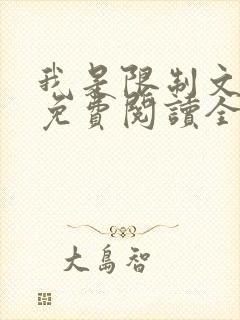 我是限制文
免費閱讀全
大島智